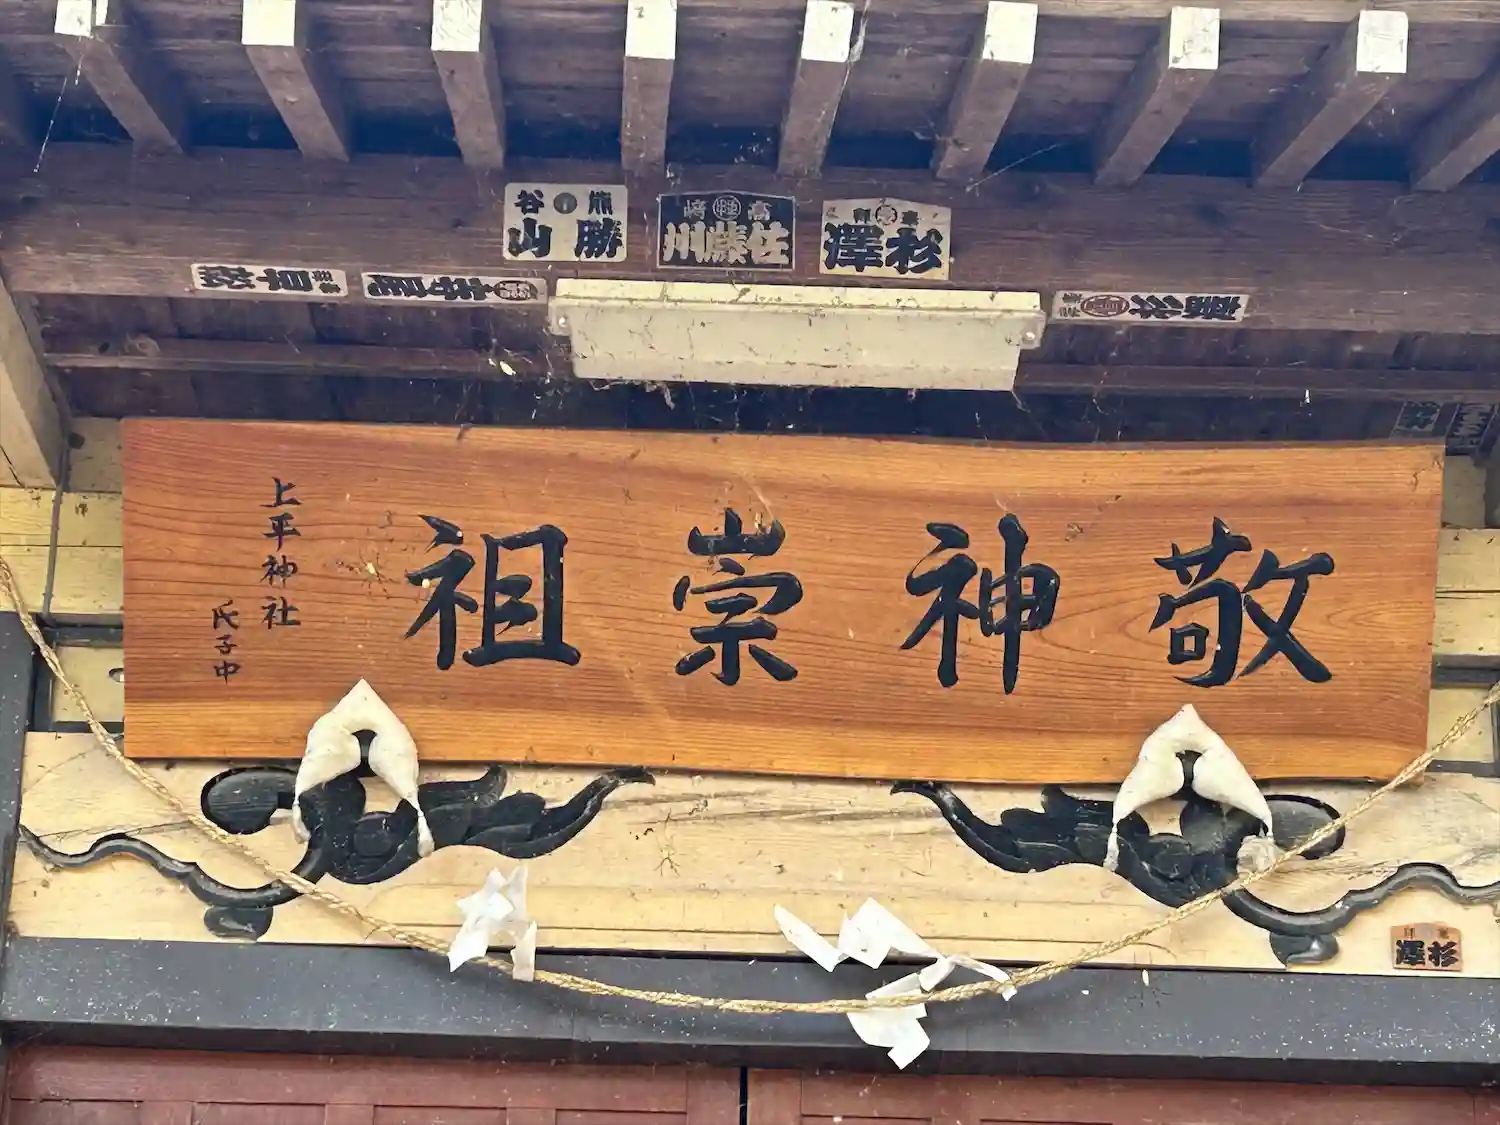 熊谷
勝山
高崎
佐藤川
杉澤
敬神崇祖
上平神社
氏子中
杉澤